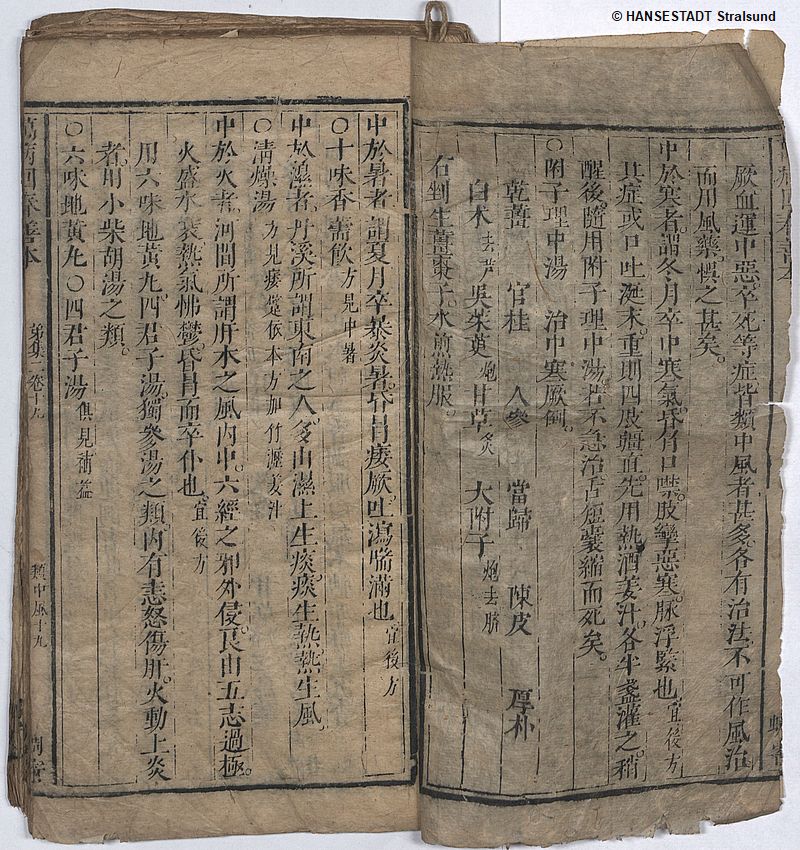 © HANSESTADT Stralsund
厥血運中惡卒死等症皆類中風者甚多各有治法不可作風治
而用風藥慎之甚矣
中於寒者謂冬月卒中寒氣昏冒口噤肢攣惡寒脉浮緊也宜後方
其症或口吐涎末重則四肢疆直先用熱酒姜汁各半盞灌之稍
醒後隨用附子理中湯若不急治舌短囊縮而死矣
○附子理中湯 治中寒厥倒
乾薑 官桂 人參 當歸 陳皮 厚朴
白术去芦 吳茱萸炮 甘草炙 大附子炮去臍
右剉生薑棗子水煎熱服
中於暑者謂夏月卒暴炎暑昏冒痿厥吐瀉喘滿也宜後方
○十味香薷飲方見中暑
中於濕者丹溪所謂東南之人多由濕土生痰痰生熱熱生風
○清燥湯方見痿躄依本方加竹瀝姜汁
中於火者河間所謂肝木之風內中六經之邪外侵良由五志過極
火盛水衰熱氣怫鬱昏冒而卒仆也宜後方
用六味地黃丸四君子湯獨參湯之類內有恚怒傷肝火動上炎
者用小柴胡湯之類
○六味地黃丸○四君子湯俱見補益
萬病回春善本 第集一卷十九 類中風十九